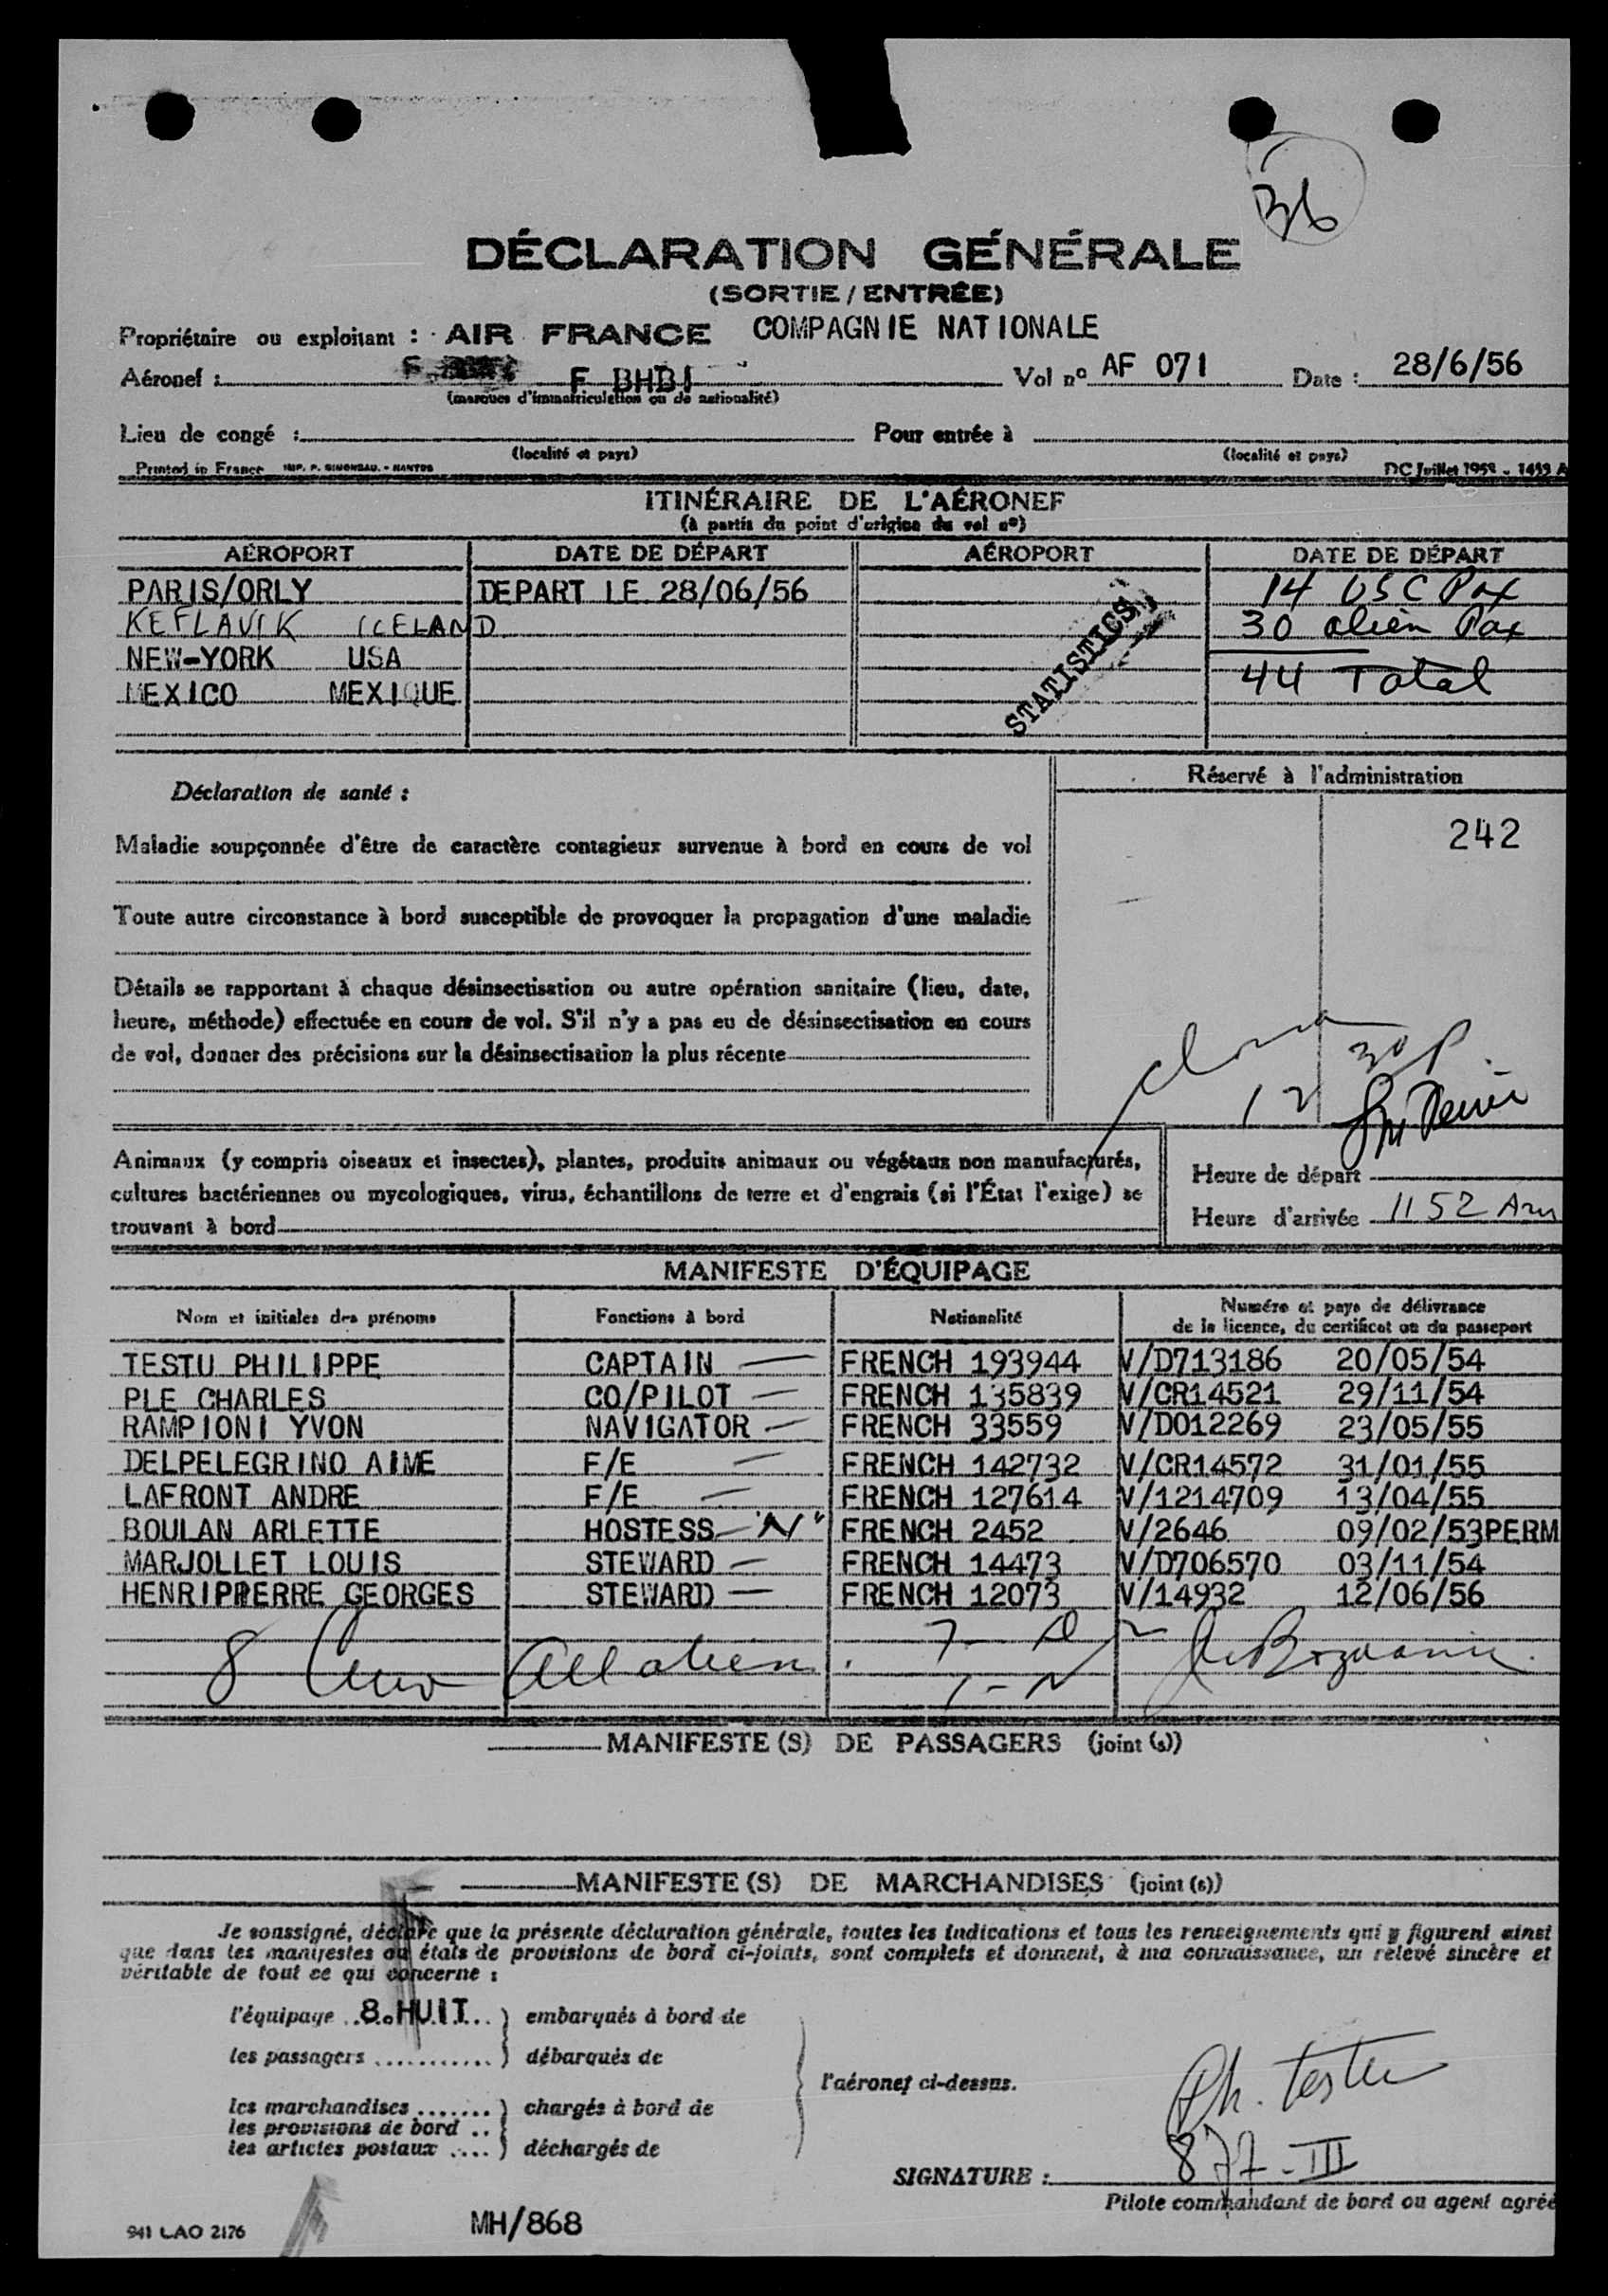 36
DÉCLARATION GÉNÉRALE
(SORTIE / ENTRÉE)
Propriétaire ou exploitant : AIR FRANCE COMPAGNIE NATIONALE
Aéronef : F. F BHBI Vol nº AF 071 Date : 28/6/56
(marques d'immatriculation ou de nationalité)
Lieu de congé : Pour entrée à
(localité et pays) (localité et pays)
Printed in France IMP. P. SIMONEAU. - NANTES DC Juillet
ITINÉRAIRE DE L'AÉRONEF
(à partir du point d'origine du vol nº)
AÉROPORT DATE DE DÉPART AÉROPORT DATE DE DÉPART
PARIS/ORLY DEPART LE 28/06/56 14 USC Pax
KEFLAVIK ICELAND 30 alien Pax
NEW-YORK USA 44 Total
MEXICO MEXIQUE
STATISTICS
Réservé à l'administration
Déclaration de santé :
242
Maladie soupçonnée d'être de caractère contagieux survenue à bord en cours de vol
Toute autre circonstance à bord susceptible de provoquer la propagation d'une maladie
Détails se rapportant à chaque désinsectisation ou autre opération sanitaire (lieu, date,
heure, méthode) effectuée en cours de vol. S'il n'y a pas eu de désinsectisation en cours
de vol, donner des précisions sur la désinsectisation la plus récente
12 30 P.
Animaux (y compris oiseaux et insectes), plantes, produits animaux ou végétaux non manufacturés,
cultures bactériennes ou mycologiques, virus, échantillons de terre et d'engrais (si l'État l'exige) se
trouvant à bord
Heure de départ
Heure d'arrivée 1152 Am
MANIFESTE D'ÉQUIPAGE
Nom et initiales des prénoms Fonctions à bord Nationalité Numéro et pays de délivrance
de la licence, du certificat ou du passeport
TESTU PHILIPPE CAPTAIN — FRENCH 193944 V/D713186 20/05/54
PLE CHARLES CO/PILOT — FRENCH 135839 V/CR14521 29/11/54
RAMPIONI YVON NAVIGATOR — FRENCH 33559 V/D012269 23/05/55
DELPELEGRINO AIME F/E — FRENCH 142732 V/CR14572 31/01/55
LAFRONT ANDRE F/E — FRENCH 127614 V/1214709 13/04/55
BOULAN ARLETTE HOSTESS — "N" FRENCH 2452 V/2646 09/02/53PERM
MARJOLLET LOUIS STEWARD — FRENCH 14473 V/D706570 03/11/54
HENRIPIERRE GEORGES STEWARD — FRENCH 12073 V/14932 12/06/56
8 Crew All alien. 7 - D
1 - N
MANIFESTE (S) DE PASSAGERS (joint (s))
MANIFESTE (S) DE MARCHANDISES (joint (s))
Je soussigné, déclare que la présente déclaration générale, toutes les indications et tous les renseignements qui y figurent ainsi
que dans les manifestes ou états de provisions de bord ci-joints, sont complets et donnent, à ma connaissance, un relevé sincère et
véritable de tout ce qui concerne :
l'équipage ..8.HUIT... ) embarqués à bord de
les passagers ............ ) débarqués de
l'aéronef ci-dessus.
les marchandises ....... ) chargés à bord de
les provisions de bord ..
les articles postaux .... ) déchargés de
Ph. Testu
877 - III
SIGNATURE :
Pilote commandant de bord ou agent agréé
941 LAO 2176 MH/868